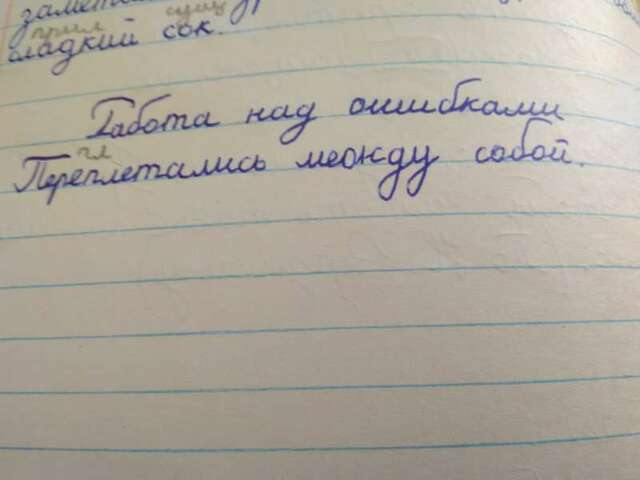 прил сущ
сладкий сок.
Работа над ошибками
гл
Переплетались между собой.